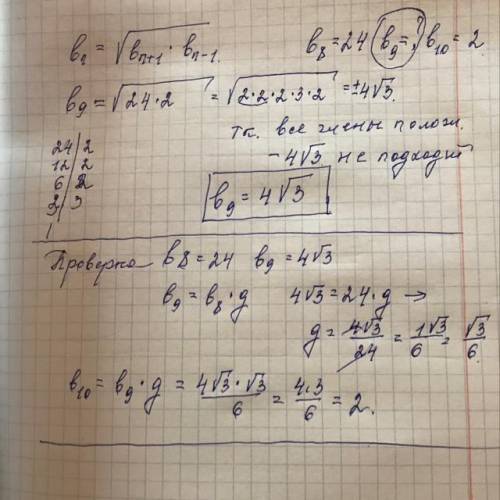 bₙ = √(bₙ₊₁ · bₙ₋₁)   b₈ = 24 (b₉ = ?) b₁₀ = 2
b₉ = √(24·2) = √(2·2·2·3·2) = ±4√3.
т.к. все члены полож.
-4√3 не подходит
24|2
12|2
6|2
3|3
1
b₉ = 4√3
Проверка b8 = 24   b₉ = 4√3
b₉ = b₈ · g   4√3 = 24 · g →
g = 4√3/24 = 1√3/6 = √3/6
b₁₀ = b₉ · g = 4√3 · √3/6 = 4·3/6 = 2.